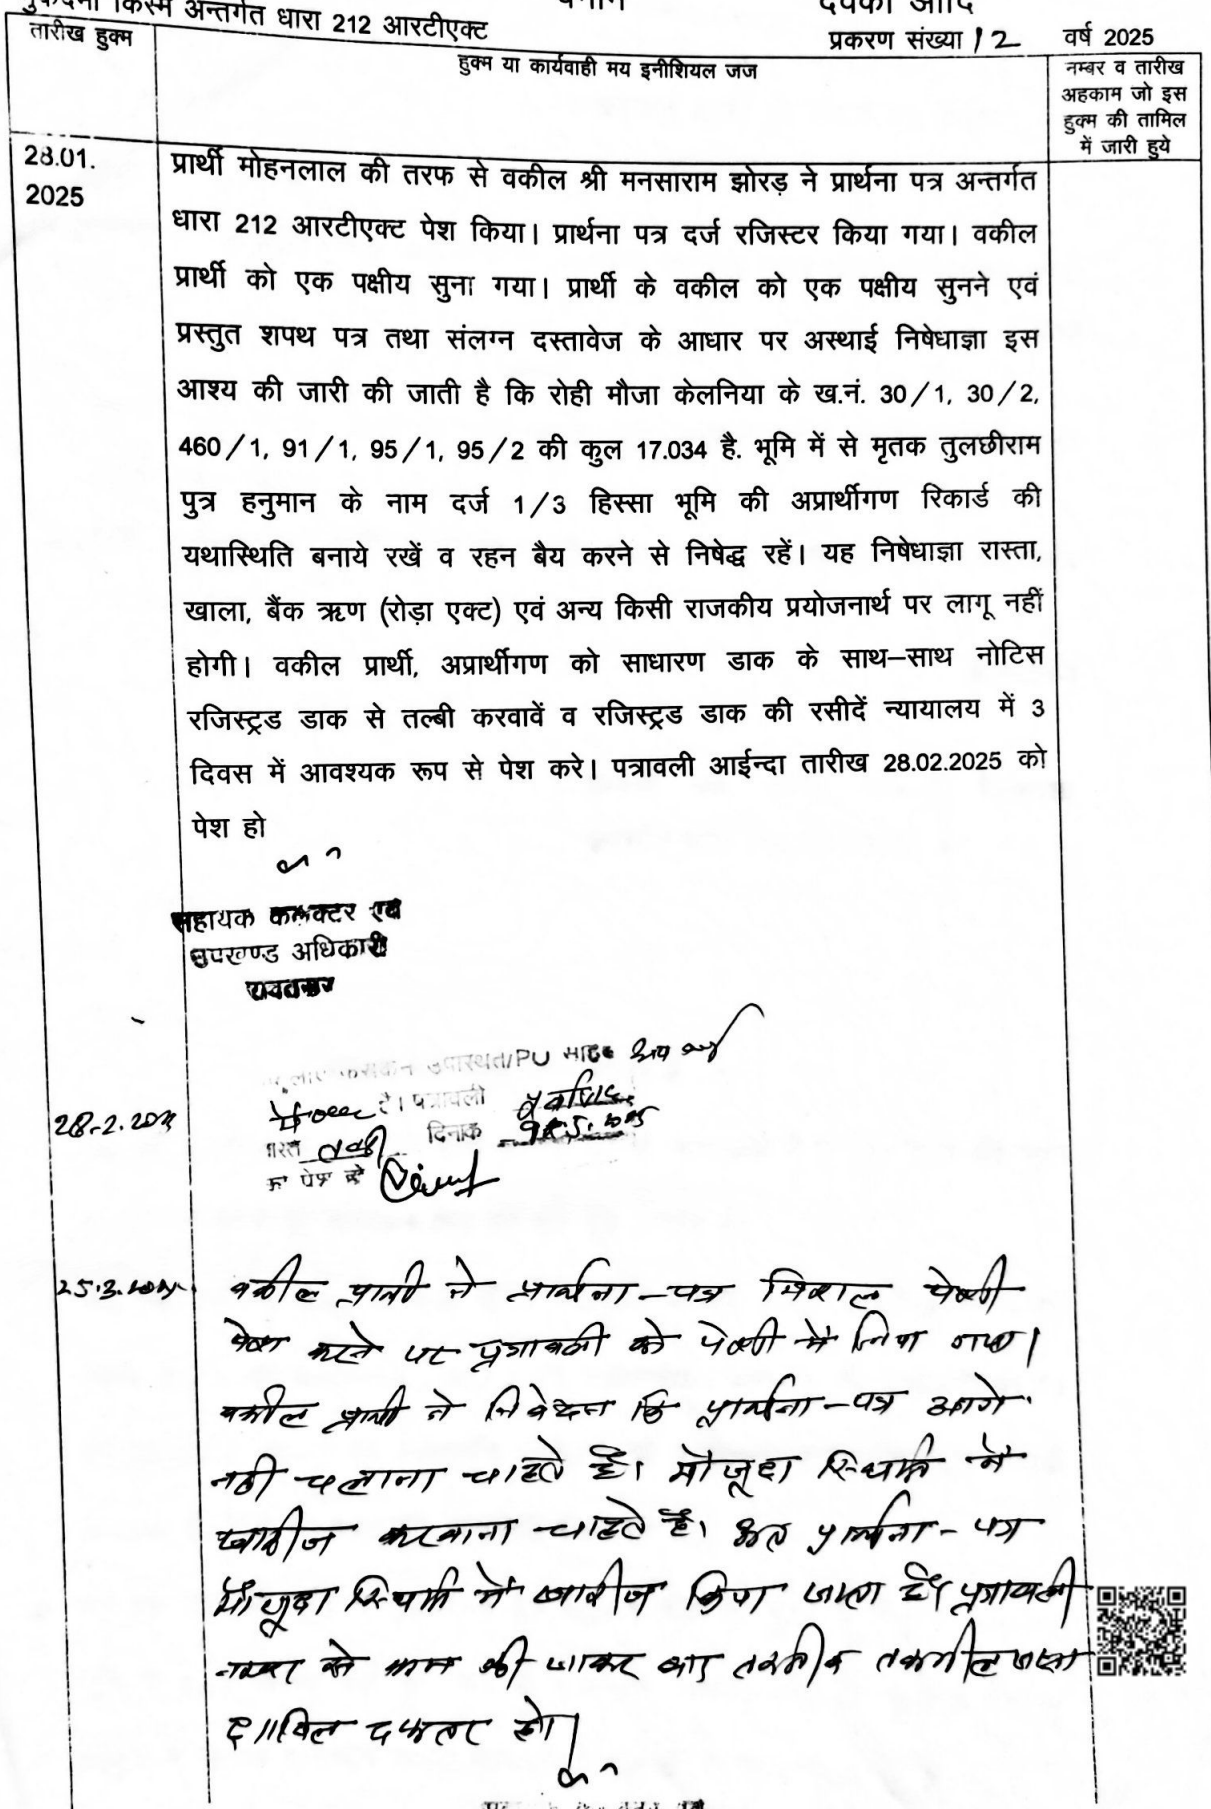 मुकदमा किस्म अन्तर्गत धारा 212 आरटीएक्ट
बनाम
देवकी आदि
प्रकरण संख्या 12 वर्ष 2025
तारीख हुक्म
हुक्म या कार्यवाही मय इनीशियल जज
नम्बर व तारीख
अहकाम जो इस
हुक्म की तामिल
में जारी हुये
28.01.
2025
प्रार्थी मोहनलाल की तरफ से वकील श्री मनसाराम झोरड़ ने प्रार्थना पत्र अन्तर्गत
धारा 212 आरटीएक्ट पेश किया। प्रार्थना पत्र दर्ज रजिस्टर किया गया। वकील
प्रार्थी को एक पक्षीय सुना गया। प्रार्थी के वकील को एक पक्षीय सुनने एवं
प्रस्तुत शपथ पत्र तथा संलग्न दस्तावेज के आधार पर अस्थाई निषेधाज्ञा इस
आश्य की जारी की जाती है कि रोही मौजा केलनिया के ख.नं. 30/1, 30/2,
460/1, 91/1, 95/1, 95/2 की कुल 17.034 है. भूमि में से मृतक तुलछीराम
पुत्र हनुमान के नाम दर्ज 1/3 हिस्सा भूमि की अप्रार्थीगण रिकार्ड की
यथास्थिति बनाये रखें व रहन बैय करने से निषेद्ध रहें। यह निषेधाज्ञा रास्ता,
खाला, बैंक ऋण (रोड़ा एक्ट) एवं अन्य किसी राजकीय प्रयोजनार्थ पर लागू नहीं
होगी। वकील प्रार्थी, अप्रार्थीगण को साधारण डाक के साथ–साथ नोटिस
रजिस्ट्रड डाक से तल्बी करवावें व रजिस्ट्रड डाक की रसीदें न्यायालय में 3
दिवस में आवश्यक रूप से पेश करे। पत्रावली आईन्दा तारीख 28.02.2025 को
पेश हो
सहायक कलक्टर एवं
उपखण्ड अधिकारी
रावतसर
उपस्थित/PO
28-2-2025
है। पत्रावली
दिनांक
को पेश हो
25.3.2025
वकील प्रार्थी ने प्रार्थना-पत्र मिशल पेशी
पेश करने पर पत्रावली को पेशी में लिया गया।
वकील प्रार्थी ने निवेदन कि प्रार्थना-पत्र आगे
नही चलाना चाहते है। मौजूदा स्थिति में
खारीज करवाना चाहते है। अतः प्रार्थना-पत्र
मौजूदा स्थिति में खारीज किया जाता है। पत्रावली
नम्बर से कम की जाकर बाद तरतीब तकमील जाब्ता
दाखिल दफ्तर हो।